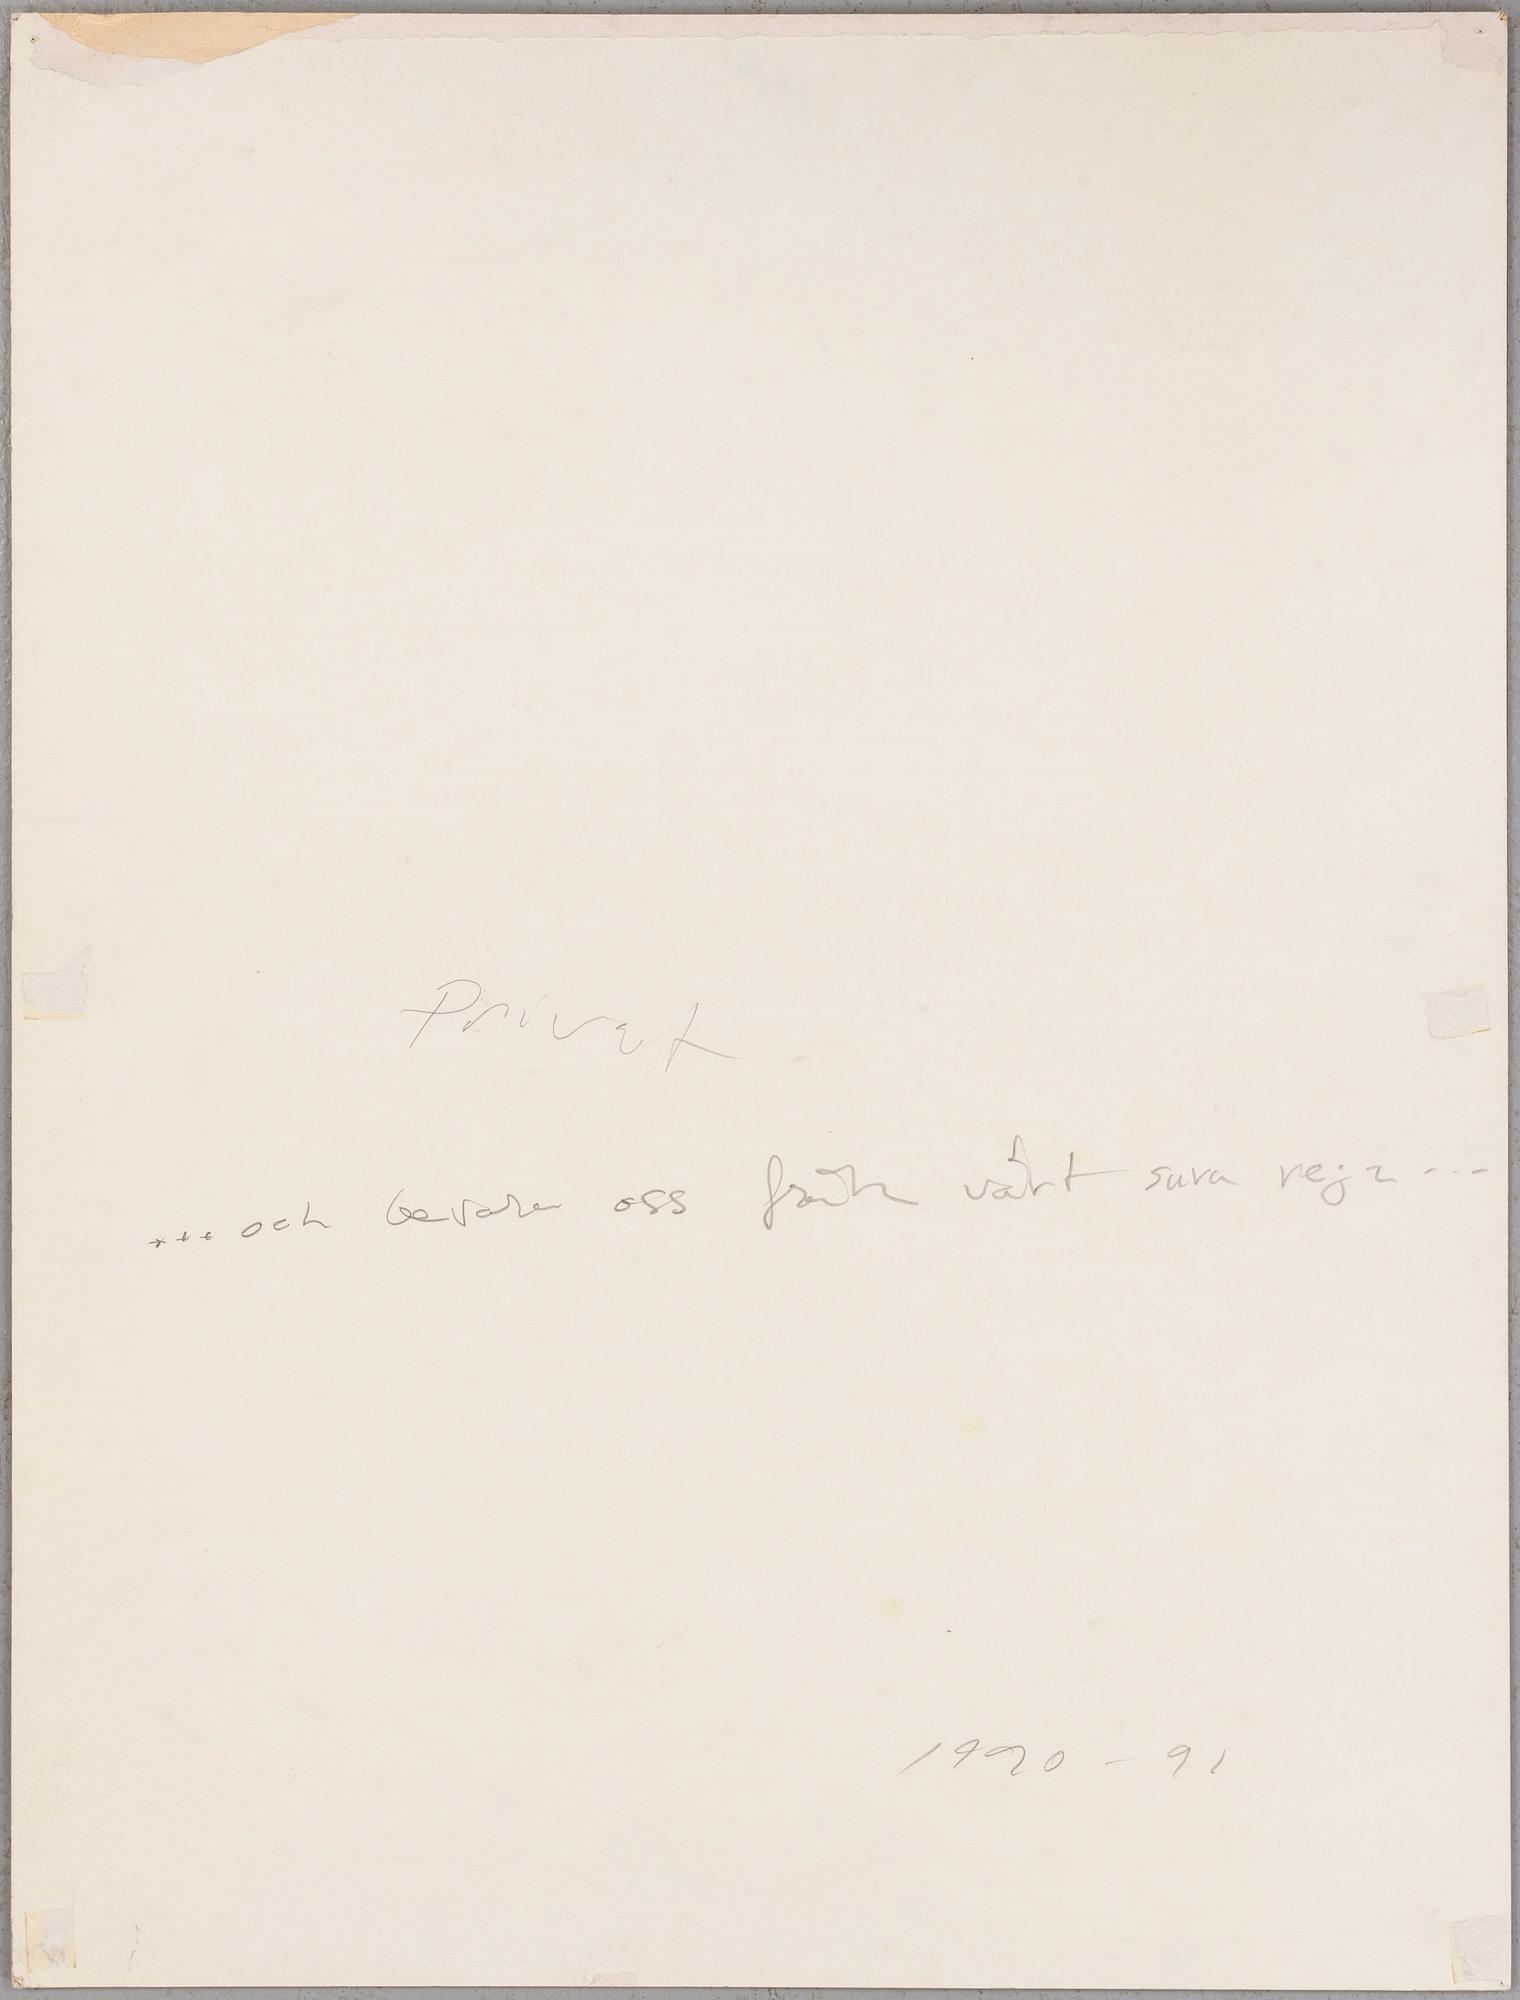 Privat
... och bevara oss från vårt sura regn ...
1990 - 91